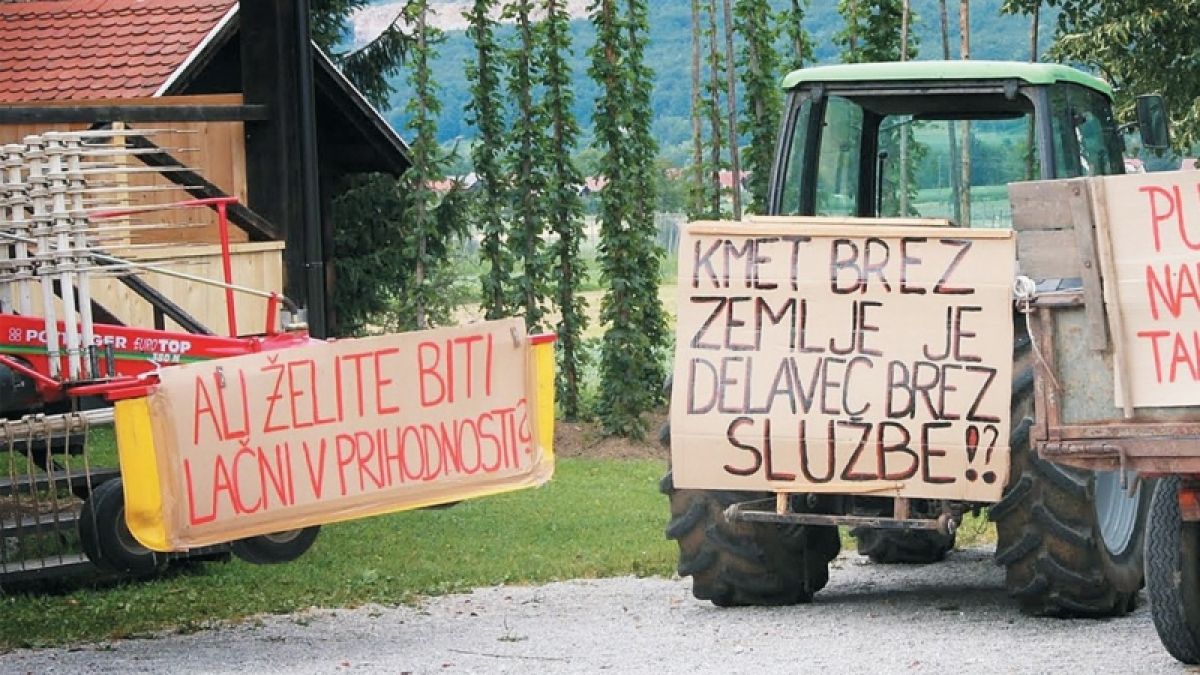 PÖTTINGER EUROTOP 380 N
ALI ŽELITE BITI
LAČNI V PRIHODNOSTI?
KMET BREZ
ZEMLJE JE
DELAVEC BREZ
SLUŽBE!?
PU
NA
TA